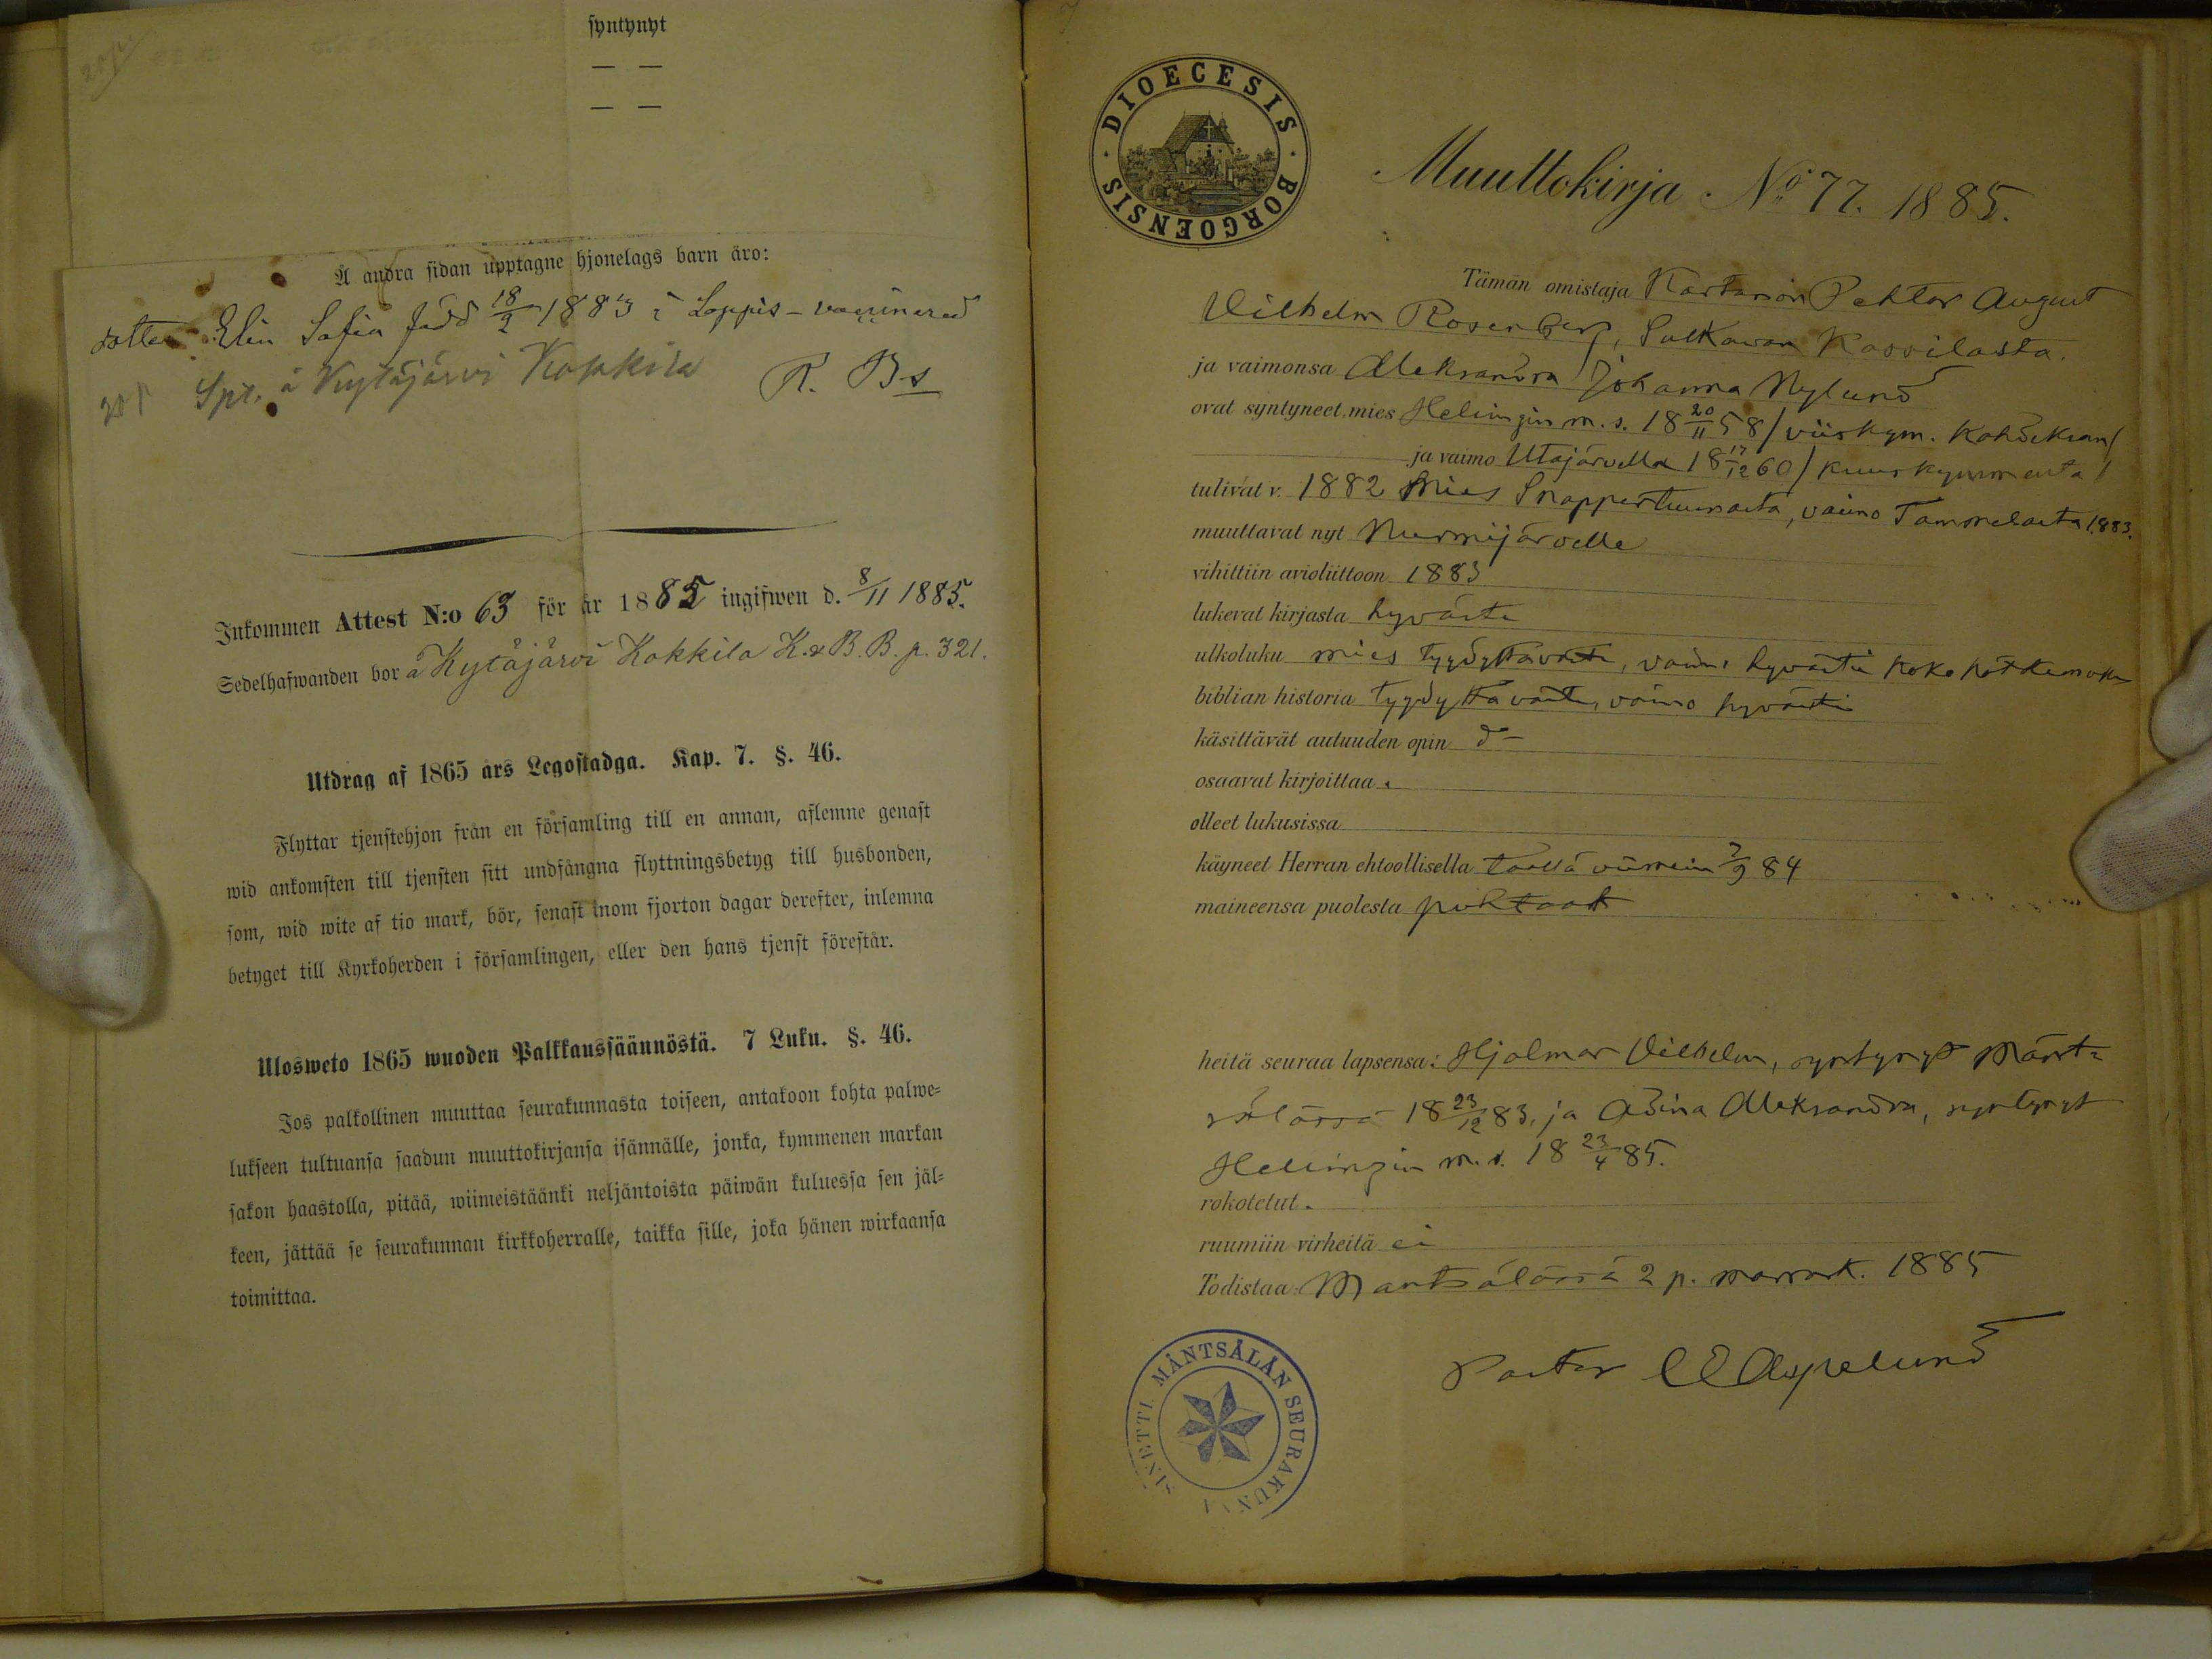 syntynyt
— —
— —
Å andra sidan upptagne hjonelags barn äro:
dotter Elin Sofia född 18/2 1883 i Loppis - vaccinerad
Spr. å Kytäjärvi Kokkila R. Bs
Inkommen Attest N:o 63 för år 1885 ingifwen d. 8/11 1885.
Sedelhafwanden bor å Kytäjärvi Kokkila K. & B. B. p. 321.
Utdrag af 1865 års Legostadga. Kap. 7. §. 46.
Flyttar tjenstehjon från en församling till en annan, aflemne genast
wid ankomsten till tjensten sitt undfångna flyttningsbetyg till husbonden,
som, wid wite af tio mark, bör, senast inom fjorton dagar derefter, inlemna
betyget till Kyrkoherden i församlingen, eller den hans tjenst förestår.
Ulosweto 1865 wuoden Palkkaussäännöstä. 7 Luku. §. 46.
Jos palkollinen muuttaa seurakunnasta toiseen, antakoon kohta palwe=
lukseen tultuansa saadun muuttokirjansa isännälle, jonka, kymmenen markan
sakon haastolla, pitää, wiimeistäänki neljäntoista päiwän kuluessa sen jäl=
keen, jättää se seurakunnan kirkkoherralle, taikka sille, joka hänen wirkaansa
toimittaa.
DIOECESIS BORGOENSIS
Muuttokirja No 77. 1885.
Tämän omistaja Kartanon Pehtor August
Vilhelm Rosenberg, Sulkavan
ja vaimonsa Aleksandra Johanna Nylund
ovat syntyneet, mies Helsingin m. s. 18 20/11 58 / viiskym. kahdeksan /
ja vaimo Utajärvella 18 17/12 60 / kuuskymmenta /
tulivat v. 1882 Mies Snappertuunasta, vaimo Tammelasta 1883.
muuttavat nyt Nurmijärvelle
vihittiin avioliittoon 1883
lukevat kirjasta hyvästi
ulkoluku mies tyydyttävästi, vaimo hyvästi koko katkismuksen
biblian historia tyydyttävästi, vaimo hyvästi
käsittävät autuuden opin d:-
osaavat kirjoittaa .
olleet lukusissa
käyneet Herran ehtoollisella täällä viimein 7/9 84
maineensa puolesta puhtaat
heitä seuraa lapsensa: Hjalmar Vilhelm, syntynyt Mänt=
sälässä 18 23/12 83, ja Adina Aleksandra, syntynyt
Helsingin m. s. 18 23/4 85.
rokotetut .
ruumiin virheitä ei
Todistaa: Mantsälässä 2 p. marrask. 1885
Pastor Aspelund
MÄNTSÄLÄN SEURAKUN